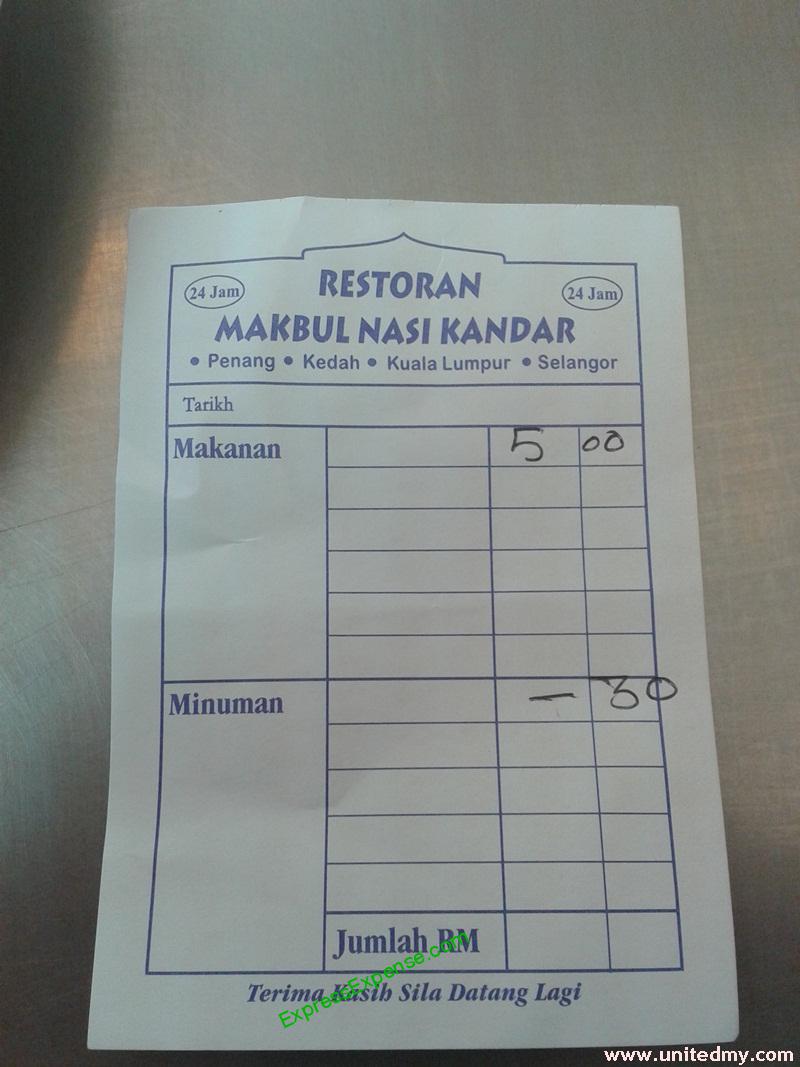 24 Jam
RESTORAN
24 Jam
MAKBUL NASI KANDAR
• Penang • Kedah • Kuala Lumpur • Selangor
Tarikh
Makanan 5 00
Minuman — 30
Jumlah RM
Terima Kasih Sila Datang Lagi
ExpressExpense.com
www.unitedmy.com